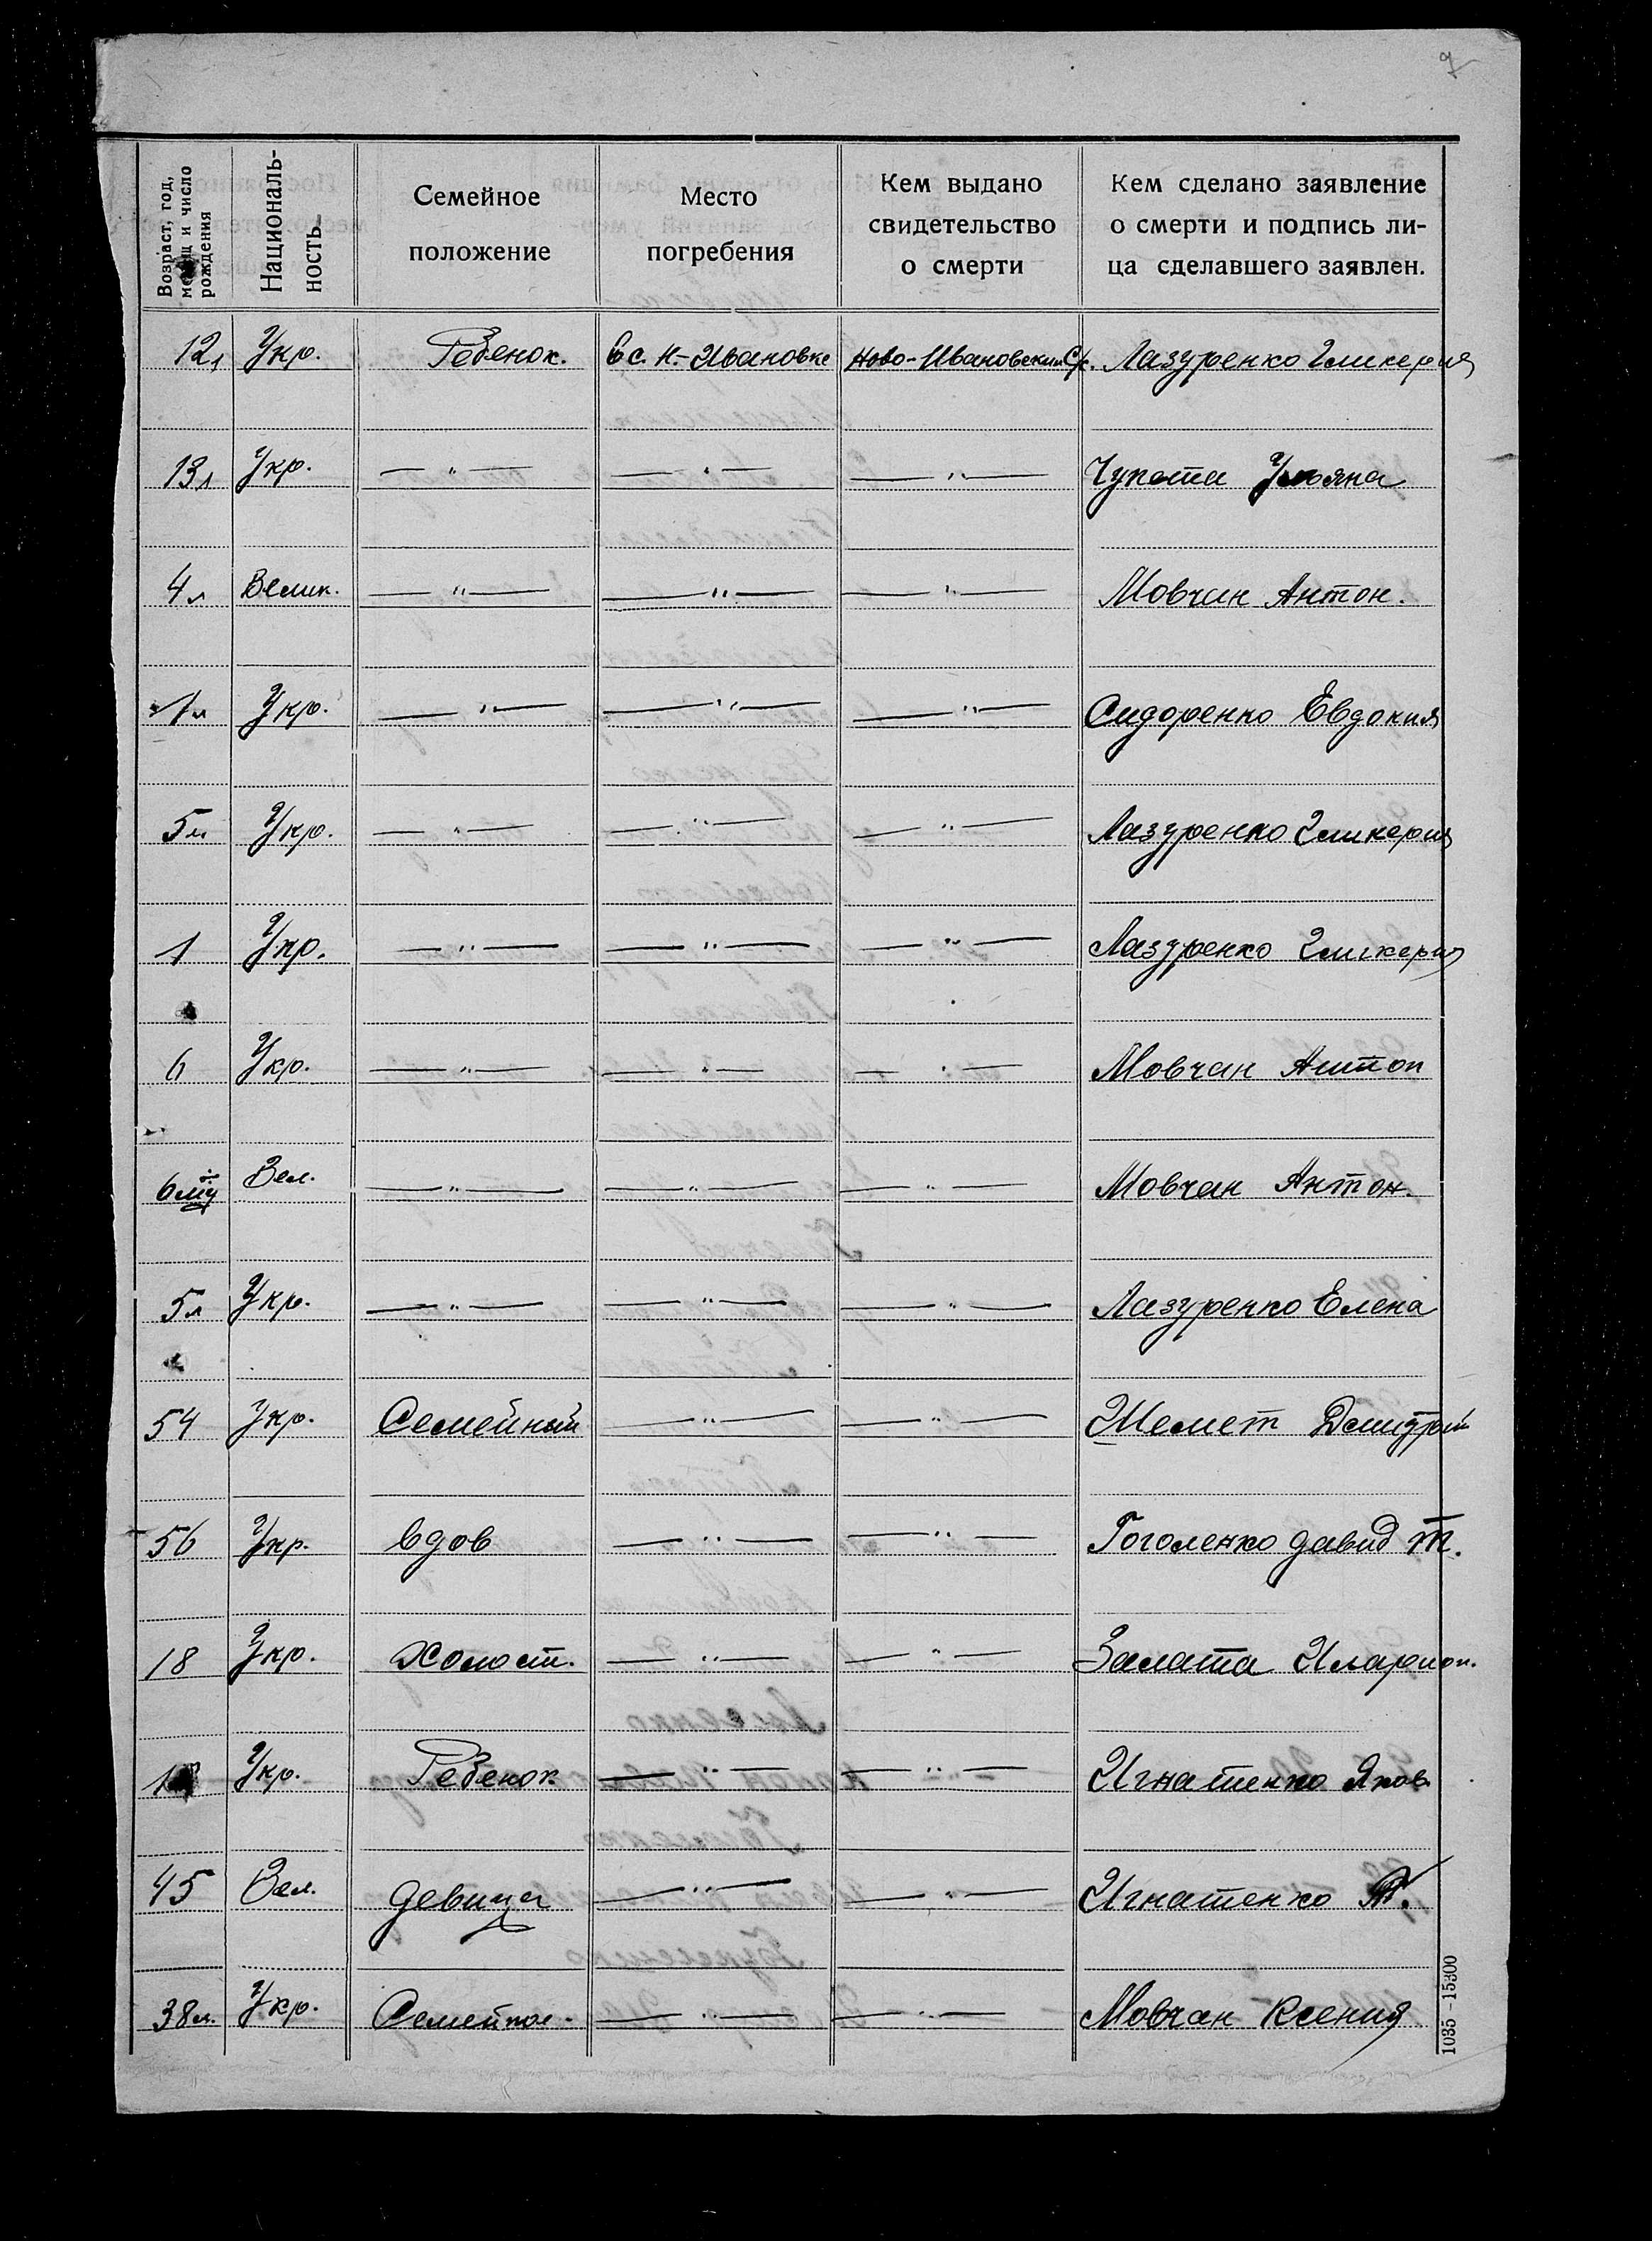 Возраст, год, месяц и число рождения
Националь-
ность
Семейное
положение
Место
погребения
Кем выдано
свидетельство
о смерти
Кем сделано заявление
о смерти и подпись ли-
ца сделавшего заявлен.
12л Укр. Ребенок. В с. Н.-Ивановке Ново-Ивановский С/с. Лазуренко Гликерия
13л Укр. — " — — " — — " — Ульяна
4л Велик. — " — — " — — " — Мовчан Антон.
1л Укр. — " — — " — — " — Сидоренко Евдокия
5л Укр. — " — — " — — " — Лазуренко Гликерия
1 Укр. — " — — " — — " — Лазуренко Гликерия
6 Укр. — " — — " — — " — Мовчан Антон
6 Вел. — " — — " — — " — Мовчан Антон.
5л Укр. — " — — " — — " — Лазуренко Елена
54 Укр. Семейный — " — — " — Шемет Дмитрий
56 Укр. вдов — " — — " — Гоголенко давид Т.
18 Укр. Холост. — " — — " — Залата Иларион.
Укр. Ребенок — " — — " — Игнатенко Яков
45 Вел. девица — " — — " — Игнатенко
38л. Укр. Семейное. — " — — " — Мовчан Ксения
1035-15300